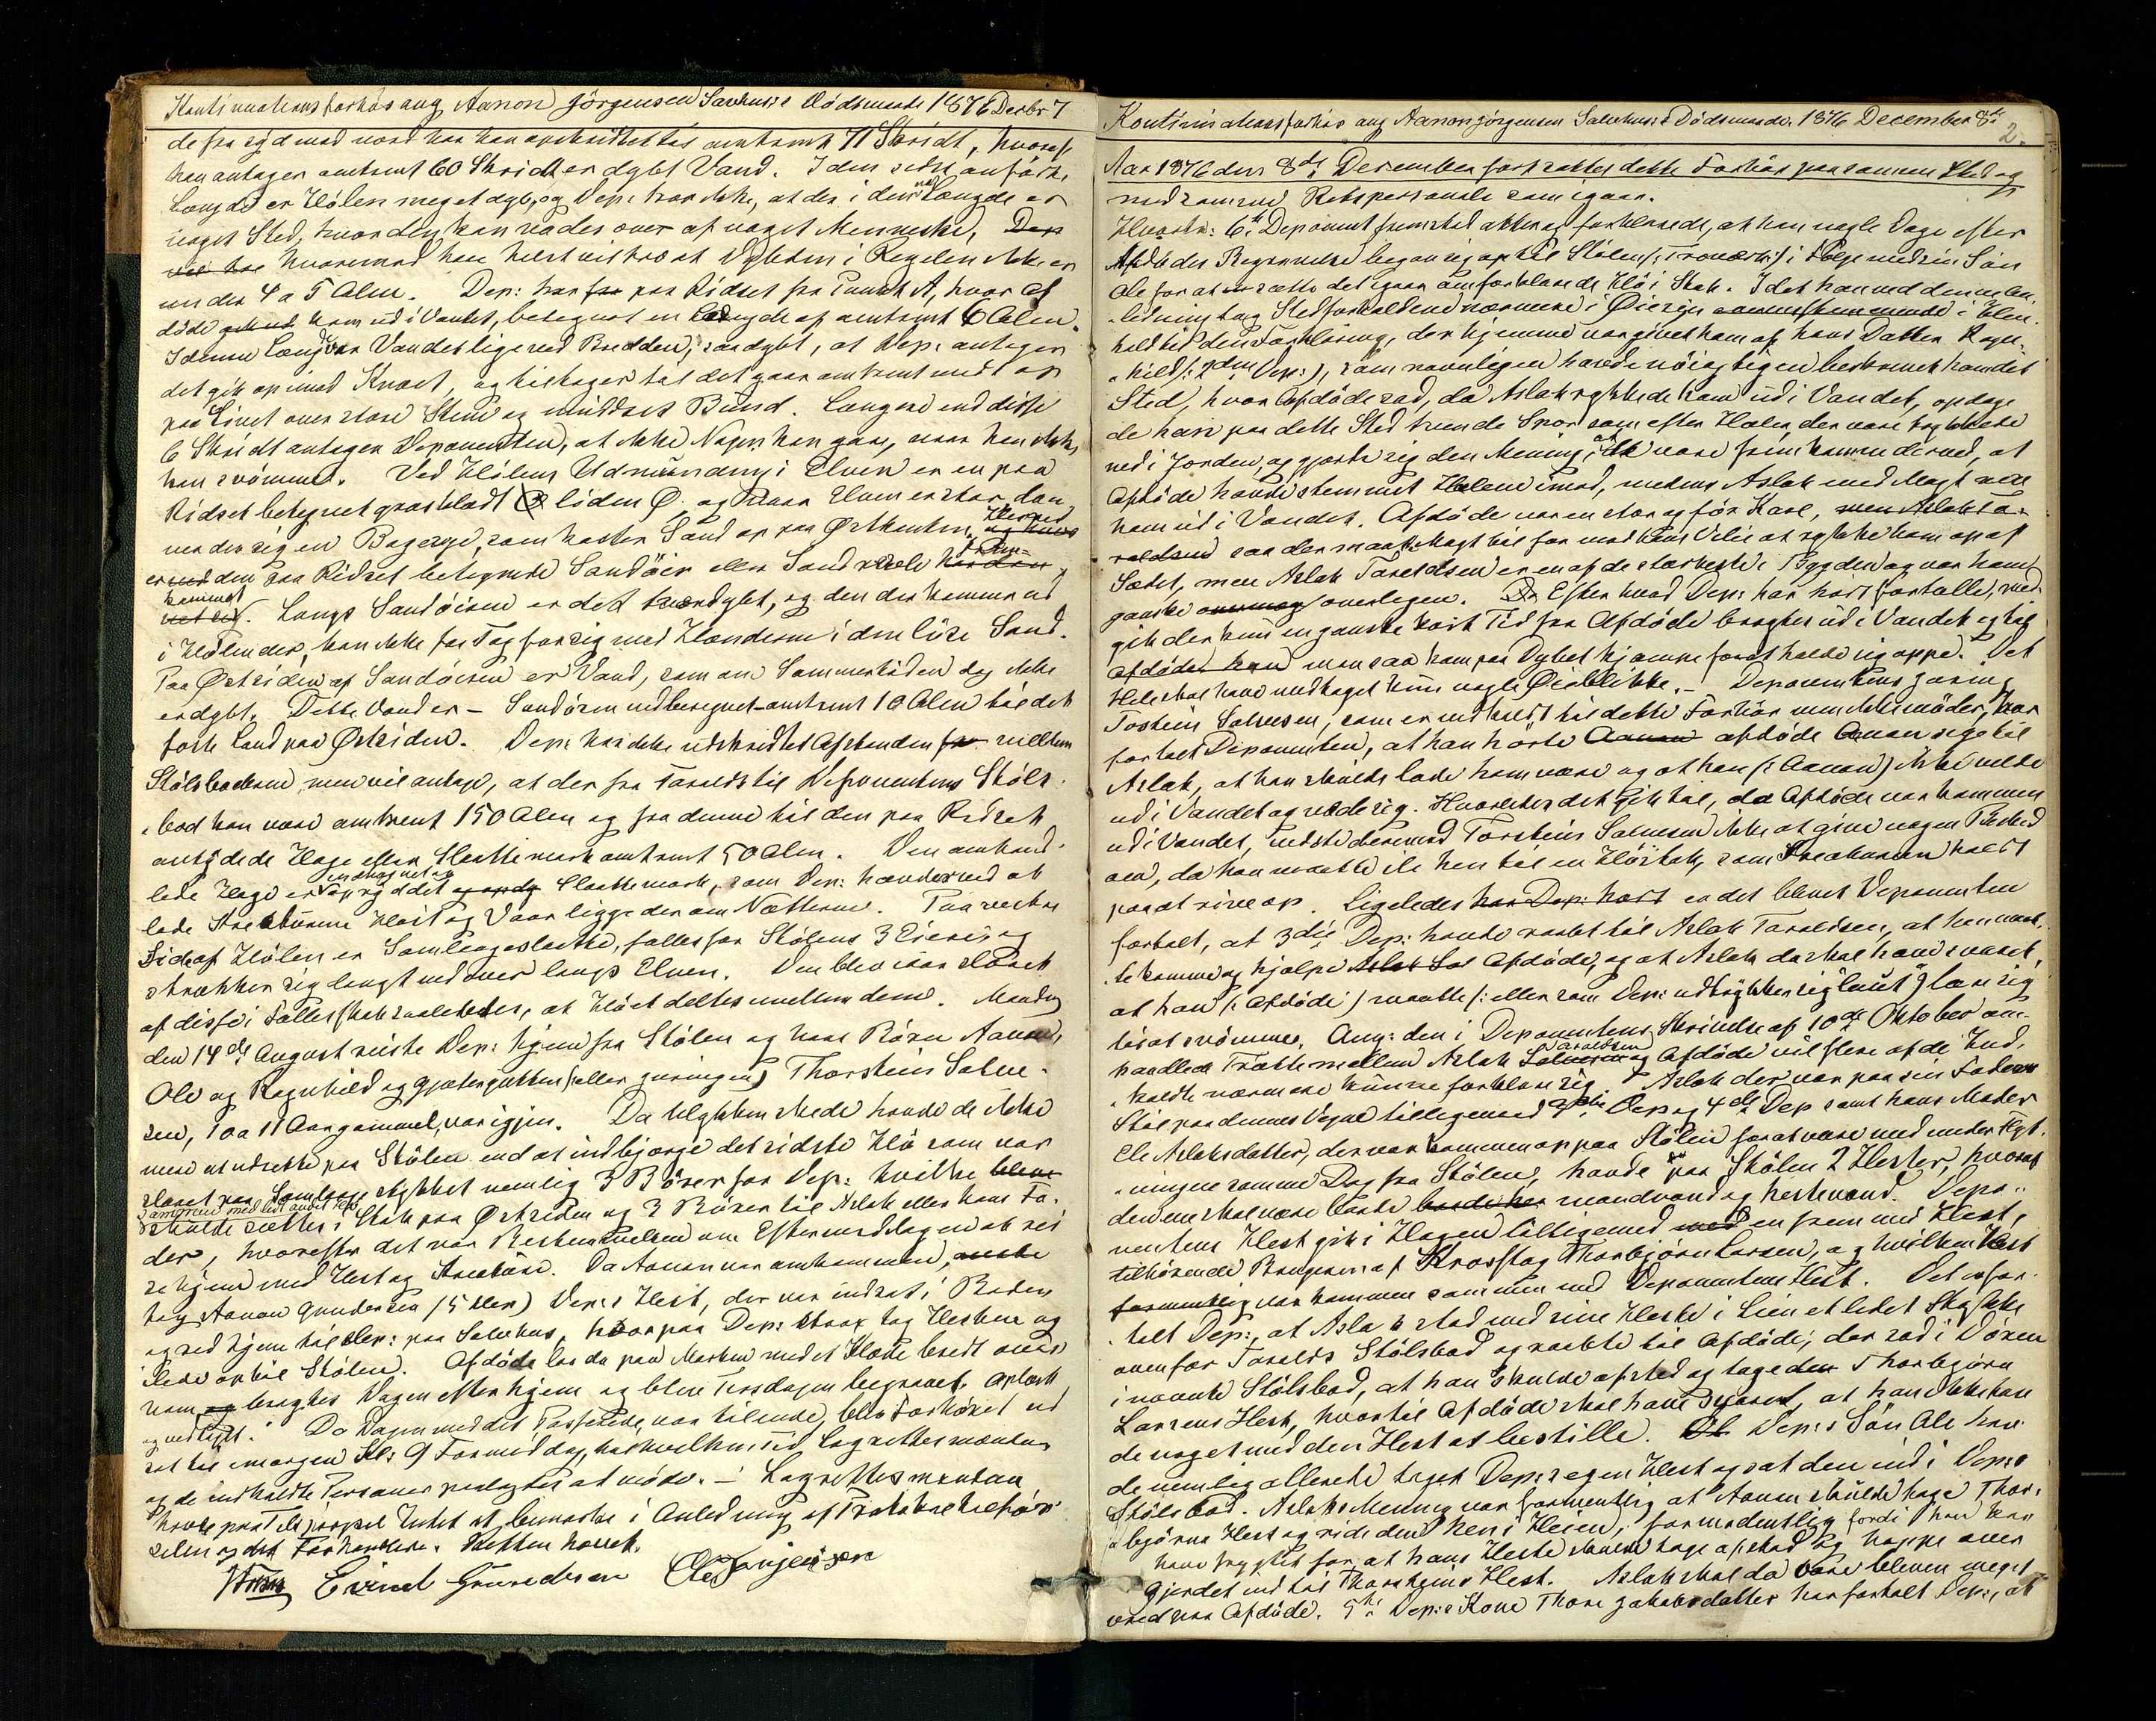 Kontinuationsforhør ang Aanon Jörgensen Salvhus's Dödsmaade 1876 Decbr 7
de fra syd mod nord har han opskridtet til omtrent 71 Skridt, hvoraf
han antager omtrent 60 Skridt er dybt Vand. I den sidst anförte
Længde er Hölen meget dyb, og Dep: tror ikke, at der i den nd Længde er
noget Sted, hvor den kan vades over af noget Menneske, Dep
vil hvoremod han helst vil tro at Dybden i Regelen ikke er
under 4 a 5 Alen. Dep: har paa Ridset fra Punct A, hvor af
döde kom ud i Vandet, betegnet en Længde af omtrent 6 Alen.
I denne Længde var Vandet lige ved Bredden, saa dybt, at Dep: antager
det gik op imod Knæet, og tiltager til det gaar omtrent midt op
paa Livet over store Stene og Bund. Længere end disse
6 Skridt antager Deponenten, at ikke Nogen kan gaa, naar han ikke
kan svömme. Ved Hölens Udmunding i Elven er en paa
Ridset betegnet græsklædt liden Ø. og naar Elven er stor, dan
ner der sig en Bagevje, som kaster Sand op paa Østkanten, Herved
er den paa Ridset betegnede Sandöien eller Sand frem=
kommet. Langs Sandöien er det tværdybt, og den der kommer ud
i Hölen der, kan ikke faa Tag for sig med Hænderne i den löse Sand.
Paa Østsiden af Sandöien er Vand, som om Sommertiden dog ikke
er dybt. Dette Vand er – Sandören medberegnet – omtrent 10 Alen til det
faste Land paa Østsiden. Dep: har ikke udskridtet Afstanden mellem
Stölsboderne, men vil antage, at der fra Taralds til Deponentens Stöls-
bod kan være omtrent 150 Alen og fra denne til den paa Ridset
antydede Hage eller Slaattemark omtrent 50 Alen. Den omhand-
lede Hage er indhegnet og opryddet Slaattemark, som Dep: hændervis at
lade Kreaturene Höst og Vaar ligge der om Nætterne. Paa vestre
Side af Hölen er Samlagsslaatte, fælles for Stölens 3 Eiere og
strækker sig langt nedover langs Elven. Den blev iaar slaaet
af disse i Fællesskab saaledes, at Höet deltes mellem dem. Mandag
den 14de August reiste Dep: hjem fra Stölen og hans Börn Aanon,
Ole og Ragnhild og Gjætergutten (eller gjæringen) Thorstein Salve-
sen, 10 a 11 Aar gammel, var igjen. Da Ulykken skede havde de ikke
mere at udrette paa Stölen end at indbjerge det sidste Hö som var
slaaet paa Samlags stykket nemlig 3 Börer for Dep: hvilke
sammen med lidt andet Hö
skulde sættes i Stak paa Østsiden og 3 Börer til Aslak eller hans Fa-
der, hvorefter det var Bestemmelsen om Eftermiddagen at rei
se hjem med Hest og Kreature. Da Aanon var omkommen,
tog Aanon Gundersen (5 Dep) Dep:s Hest, der var indsat i Boden
og red hjem til Dep: paa Salvhus, hvorpaa Dep: strax tog Hesten og
ilede op til Stölen. Afdöde laa da paa Marken med et Klæde bredt over
ham, bragtes Dagen efter hjem og blev Torsdagen begravet. Oplæst
og vedtaget. Da Dagen med det Passerede, var tilende, blev Forhöret ud
sat til imorgen Kl: 9 Formiddag, til hvilken Tid Lagrettesmændene
og de indkaldte Personer paalagdes at möde. – Lagrettesmændene
havde paa Tilspørgsel Intet at bemærke i Anledning af Protokoltilför-
selen og det Forhandlede. Retten hævet.
Eivind Gunvaldsen Ole Tarjeisen
Kontinuationsforhör ang Aanon Jörgensen Salvhus's Dödsmaade. 1876 December 8de
2.
Aar 1876 den 8de December fortsattes dette Forhör paa samme Sted og
med samme Retspersonale som igaar.
Hvorefter: 6te Deponent fremstod atter og forklarede, at han nogle Dage efter
Afdödes Begravelse begav sig op til Stölen i Følge med sin Sön
Ole for at sætte det igaar omforklarede Hö i Stak. I det han ved denne An-
ledning tog Stedforholdene nærmere i Øiesyn i Hen-
hold til den Forklaring, der hjemme var givet ham af hans Datter Ragn-
hild (: 2den Dep:), som navnligen havde nöiagtigen beskrevet ham det
Sted, hvor Afdöde sad, da Aslak rykkede ham ud i Vandet, opdage
de han paa dette Sted tvende Spor som efter Hæler der vare trykkede
ned i Jorden, og gjorde sig den Mening, at de vare fremkomne derved, at
Afdöde havde stemmet Hælene imod, medens Aslak med Magt
ham ud i Vandet. Afdöde var en stor og för Karl, men Aslak Ta-
raldsen saa der maatte Magt til for mod hans Vilie at rykke ham op af
Sædet, men Aslak Taraldsen er en af de stærkeste i Bygden og var ham
ganske overlegen. Efter hvad Dep: har hört fortalle, med-
gik der kun en ganske kort Tid fra Afdöde bragtes ud i Vandet og til
man saa ham paa Dybet kjæmpe for at holde sig oppe. Det
Hele skal have medtaget kun nogle Øieblikke. – Deponentens gjæring
Tostein Salvesen, som er indkaldt til dette Forhör men ikke möder, har
fortalt Deponenten, at han hörte afdöde Aanon sige til
Aslak, at han skulde lade ham være og at han (: Aanon) ikke vilde
ud i Vandet og væde sig. Hvorledes det gik til, da Afdöde var kommen
ud i Vandet, vidste derimod Torstein Salvesen ikke at give nogen Besked
om, da han maatte ile hen til en Höstak, som Kreaturene holdt
paa at rive op. Ligeledes er det blevet Deponenten
fortalt, at 3die Dep: havde raabt til Aslak Taraldsen, at han maat-
te komme og hjælpe Afdöde, og at Aslak da skal have svaret,
at han (: Afdöde) maatte (: eller som Dep: udtrykker sig "laut") lære sig
til at svömme. Ang: den i Deponentens Skrivelse af 10de Oktober om-
handlede Trætte mellem Aslak Taraldsen og Afdöde vil flere af de Ind-
kaldte nærmere kunne forklare sig. Aslak der var paa sin Faders
Stöl paa dennes Vegne tilligemed Dep og 4de Dep samt hans Moder
Ole Aslaksdatter, der var kommen op paa Stölen for at være med under Flyt-
ningen samme Dag fra Stölen, havde paa Stölen 2 Heste, hvoraf
den ene skal være baade mandvond og hestevond. Depo-
nentens Hest gik i Hagen tilligemed en fremmed Hest,
tilhörende Brugeren af Krossstøg Thorbjörn Larsen, og hvilken Hest
formentlig var kommen sammen med Deponentens Hest. Det er for-
talt Dep:, at Aslak stod med sine Heste i Lien et lidet Stykke
ovenfor Taralds Stölsbod og raabte til Afdöde, der sad i Dören
i nævnte Stölsbod, at han skulde afsted og tage den Thorbjörn
Larsens Hest, hvortil Afdöde skal have svaret, at han ikke hav
de noget med den Hest at bestille. Dep:s Sön Ole hav-
de nemlig allerede taget Dep:s egen Hest og sat den ind i Dep:s
Stölsbod. Aslaks Mening var formentlig at Aanon skulde tage Thor-
björns Hest og ride den hen i Heien, formodentlig fordi han har
have frygtet for, at hans Heste skulde tage afsted og hoppe over
Gjerdet ind til Thorsteins Hest. Aslak skal da være bleven meget
vred paa Afdöde. 5te Dep:s Kone Thore Jakobsdatter har fortalt Dep:, at